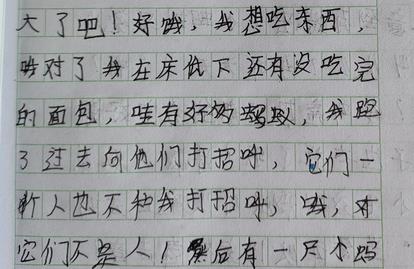 大了吧！好饿，我想吃东西，
哦对了我在床低下还有没吃完
的面包，哇有好多蚂蚁，我跑
了过去向他们打招呼，它们一
新人也不和我打招呼，哦，对
它们不是人！然后有一只小蚂